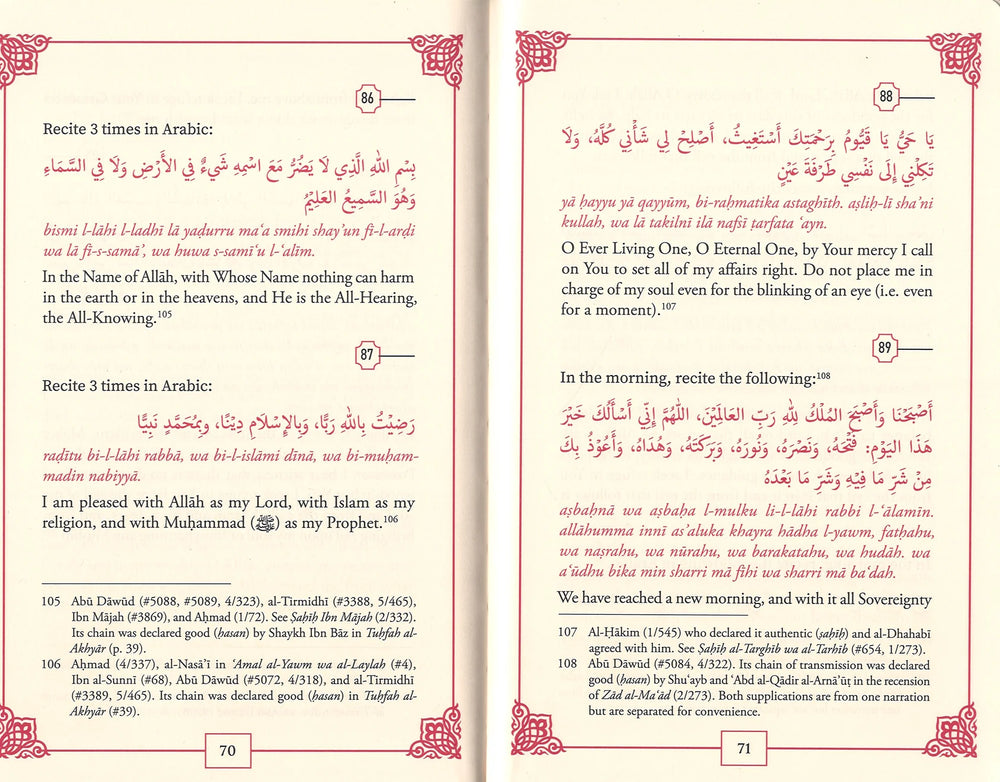 86
Recite 3 times in Arabic:
بِسْمِ اللهِ الَّذِي لَا يَضُرُّ مَعَ اسْمِهِ شَيْءٌ فِي الأَرْضِ وَلَا فِي السَّمَاءِ
وَهُوَ السَّمِيعُ العَلِيْمُ
bismi l-lāhi l-ladhī lā yaḍurru maʿa smihi shayʾun fi-l-arḍi
wa lā fi-s-samāʾ, wa huwa s-samīʿu l-ʿalīm.
In the Name of Allāh, with Whose Name nothing can harm
in the earth or in the heavens, and He is the All-Hearing,
the All-Knowing.105
87
Recite 3 times in Arabic:
رَضِيْتُ بِاللهِ رَبًّا، وَبِالإِسْلَامِ دِيْنًا، وبِمُحَمَّدٍ نَبِيًّا
raḍītu bi-l-lāhi rabbā, wa bi-l-islāmi dīnā, wa bi-muḥam-
madin nabiyyā.
I am pleased with Allāh as my Lord, with Islam as my
religion, and with Muḥammad (ﷺ) as my Prophet.106
105 Abū Dāwūd (#5088, #5089, 4/323), al-Tirmidhī (#3388, 5/465),
Ibn Mājah (#3869), and Aḥmad (1/72). See Ṣaḥīḥ Ibn Mājah (2/332).
Its chain was declared good (ḥasan) by Shaykh Ibn Bāz in Tuḥfah al-
Akhyār (p. 39).
106 Aḥmad (4/337), al-Nasāʾī in ʿAmal al-Yawm wa al-Laylah (#4),
Ibn al-Sunnī (#68), Abū Dāwūd (#5072, 4/318), and al-Tirmidhī
(#3389, 5/465). Its chain was declared good (ḥasan) in Tuḥfah al-
Akhyār (#39).
70
88
يَا حَيُّ يَا قَيُّومُ بِرَحْمَتِكَ أَسْتَغِيثُ، أَصْلِحْ لِي شَأْنِي كُلَّهُ، وَلَا
تَكِلْنِي إِلَى نَفْسِي طَرْفَةَ عَيْنٍ
yā ḥayyu yā qayyūm, bi-raḥmatika astaghīth. aṣliḥ-lī shaʾni
kullah, wa lā takilnī ilā nafsī ṭarfata ʿayn.
O Ever Living One, O Eternal One, by Your mercy I call
on You to set all of my affairs right. Do not place me in
charge of my soul even for the blinking of an eye (i.e. even
for a moment).107
89
In the morning, recite the following:108
أَصْبَحْنَا وَأَصْبَحَ المُلْكُ لِلهِ رَبِّ العَالَمِيْنَ، اللَّهُمَّ إِنِّي أَسْأَلُكَ خَيْرَ
هَذَا اليَوْمِ: فَتْحَهُ، وَنَصْرَهُ، وَنُورَهُ، وَبَرَكَتَهُ، وَهُدَاهُ، وَأَعُوْذُ بِكَ
مِنْ شَرِّ مَا فِيْهِ وَشَرِّ مَا بَعْدَهُ
aṣbaḥnā wa aṣbaḥa l-mulku li-l-lāhi rabbi l-ʿālamīn.
allāhumma innī asʾaluka khayra hādha l-yawm, fatḥahu,
wa naṣrahu, wa nūrahu, wa barakatahu, wa hudāh. wa
aʿūdhu bika min sharri mā fīhi wa sharri mā baʿdah.
We have reached a new morning, and with it all Sovereignty
107 Al-Ḥākim (1/545) who declared it authentic (ṣaḥīḥ) and al-Dhahabī
agreed with him. See Ṣaḥīḥ al-Targhīb wa al-Tarhīb (#654, 1/273).
108 Abū Dāwūd (#5084, 4/322). Its chain of transmission was declared
good (ḥasan) by Shuʿayb and ʿAbd al-Qādir al-Arnāʾūṭ in the recension
of Zād al-Maʿād (2/273). Both supplications are from one narration
but are separated for convenience.
71